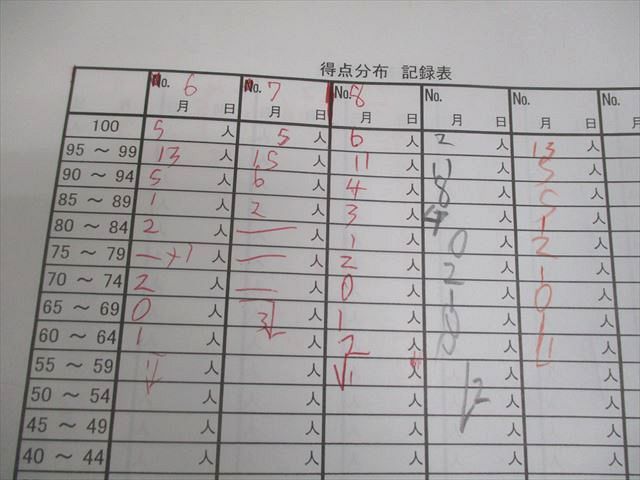 得点分布 記録表
No. 6 No. 7 No. 8 No. No. No.
月 日 月 日 月 日 月 日 月 日 月
100 5 人 5 人 6 人 2 人 13 人
95 ～ 99 13 人 15 人 11 人 11 人 5 人
90 ～ 94 5 人 6 人 4 人 8 人 5 人
85 ～ 89 1 人 2 人 3 人 4 人 1 人
80 ～ 84 2 人 — 人 1 人 0 人 2 人
75 ～ 79 人 — 人 2 人 2 人 1 人
70 ～ 74 2 人 人 0 人 1 人 0 人
65 ～ 69 0 人 3 人 1 人 0 人 人
60 ～ 64 1 人 人 2 人 0 人 人
55 ～ 59 人 人 1 人 人 人
50 ～ 54 人 人 人 2 人 人
45 ～ 49 人 人 人 人 人
40 ～ 44 人 人 人 人 人